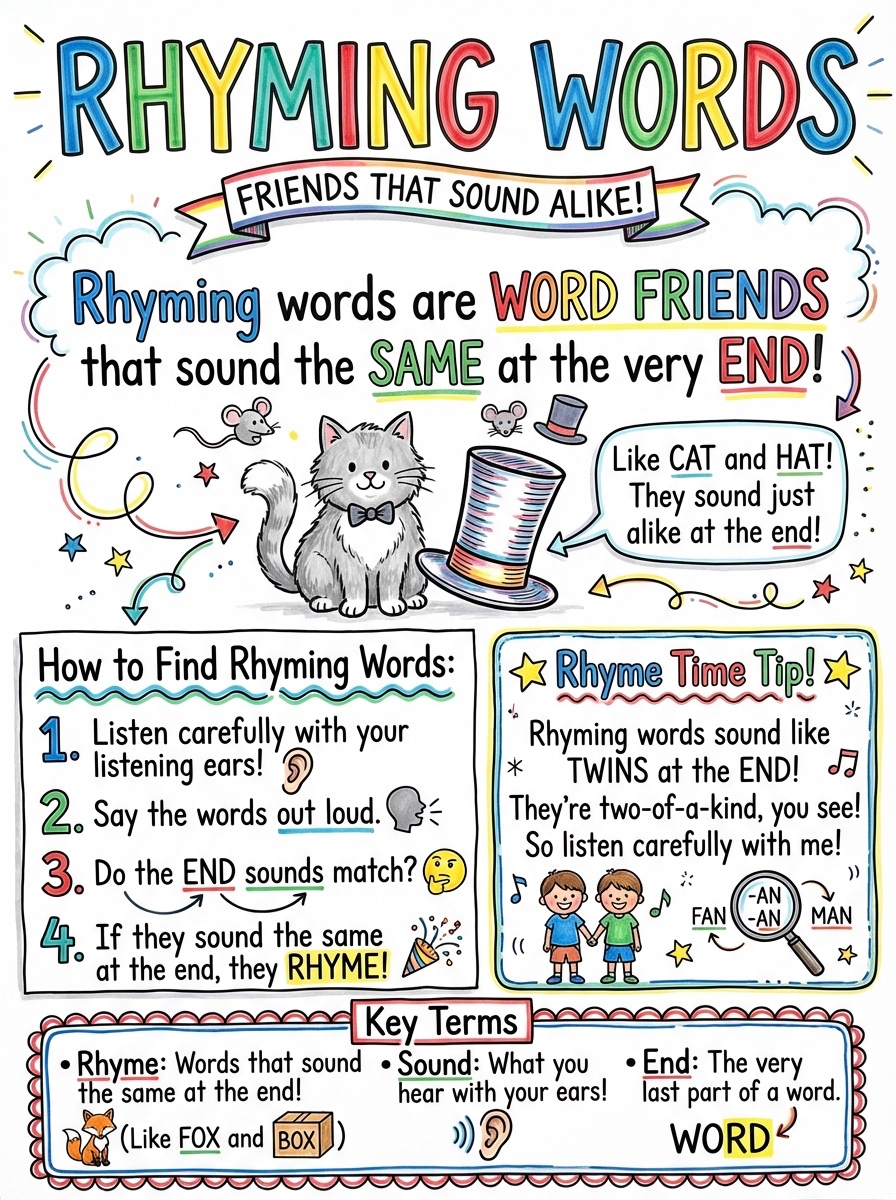 RHYMING WORDS
FRIENDS THAT SOUND ALIKE!
Rhyming words are WORD FRIENDS
that sound the SAME at the very END!
Like CAT and HAT!
They sound just
alike at the end!
How to Find Rhyming Words:
1. Listen carefully with your
listening ears!
2. Say the words out loud.
3. Do the END sounds match?
4. If they sound the same
at the end, they RHYME!
Rhyme Time Tip!
Rhyming words sound like
TWINS at the END!
They're two-of-a-kind, you see!
So listen carefully with me!
FAN
-AN
-AN
MAN
Key Terms
• Rhyme: Words that sound
the same at the end!
(Like FOX and BOX)
• Sound: What you
hear with your ears!
• End: The very
last part of a word.
WORD